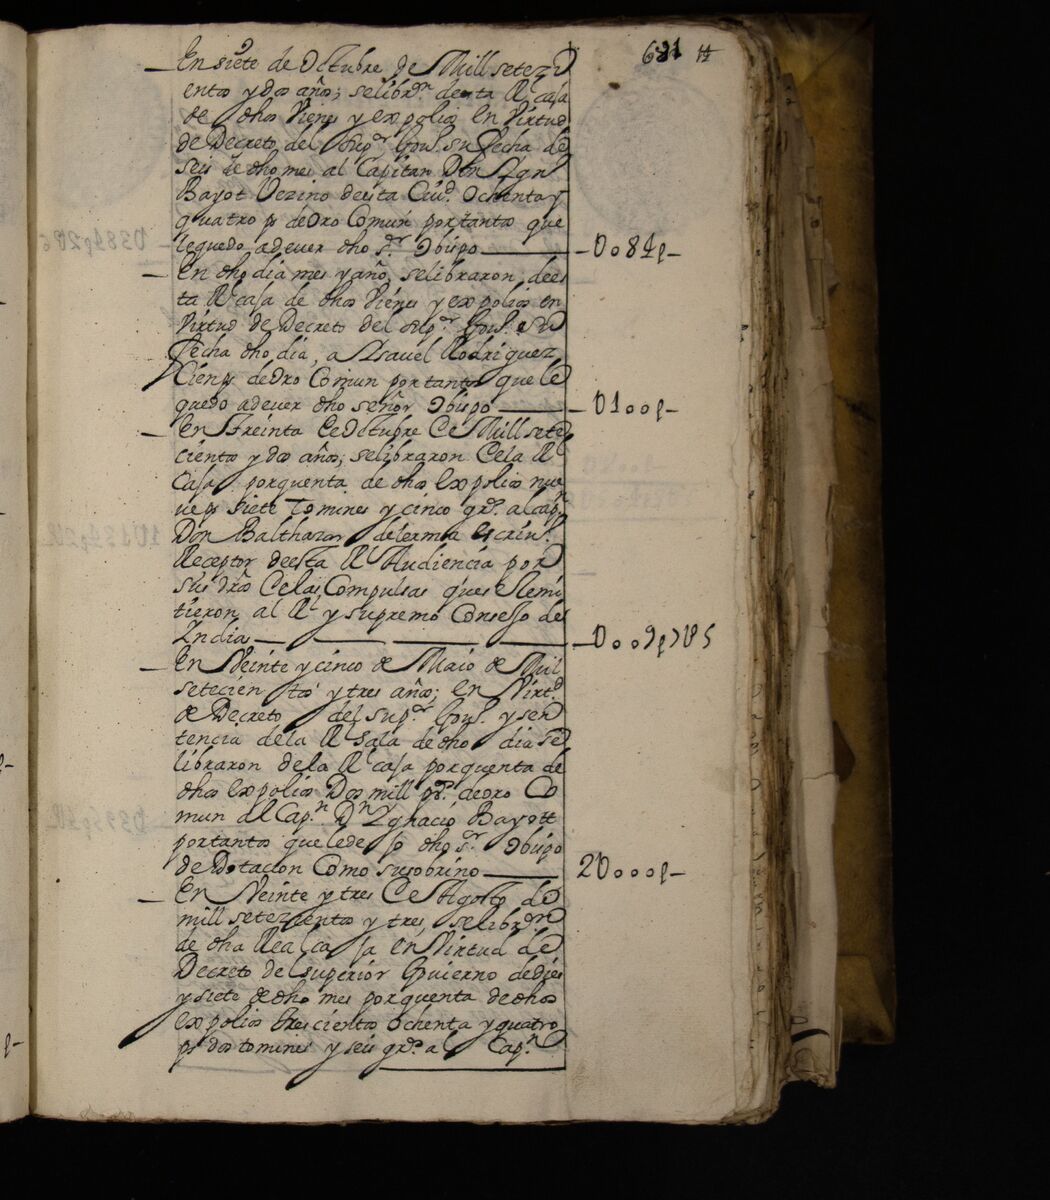 681 tt
En siete de Octubre de Mill setezi
entos y dos años; se libr.on desta Rl casa
de dhos Vienes y expolios en Virtud
de Decreto del Sup.or Gou.no su fecha de
seis de dho mes al Capitan Don Ygn.o
Bayot Vezino desta Ciu.d ochenta y
quatro ps de Oro Comun por tantos que
le quedo a dever dho s.r Obispo — U084p—
En dho dia mes y año, se libraron, dees
ta Rl casa de dhos Vienes y expolios en
Virtud de Decreto del Sup.or Gou.no su
fecha dho dia, a Ysavel Rodriguez
Cien ps de Oro Comun por tantos que le
quedo a dever dho señor Obispo — U100p—
En treinta de Octubre de Mill sete
cientos y dos años; se libraron de la Rl
Casa por quenta de dhos expolios nue
ue ps siete tomines y cinco gr.s al cap.n
Don Balthazar de lerma escriu.o
Receptor desta Rl Audiencia por
sus dr.os de las Compulsas que se Remi
tieron al Rl y supremo Consejo de
Yndias — U009p7U5
En Veinte y cinco de Maio de Mil
setecientos y tres años; en Virt.d
de Decreto del sup.or Gou.no y sen
tencia de la Rl sala de dho dia se
libraron de la Rl casa por quenta de
dhos expolios Dos mill ps. de oro Co
mun al Cap.n D.n Ygnacio Bayott
por tantos que le dejo dho s.r Obispo
de Dotacion Como su sobrino — 2U000p—
En Veinte y tres de Agosto de
mill setezientos y tres, se libr.on
de dha Real casa en Virtud de
Decreto del superior Gouierno de dies
y siete de dho mes por quenta de dhos
expolios trescientos ochenta y quatro
ps dos tomines y seis gr.s al Cap.n